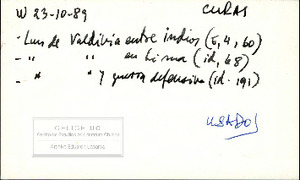 W 23-10-89
CURAS
- Luis de Valdivia entre indios (5, 4, 60)
- " " en Lima (id, 68)
- " " y guerra defensiva (id. 191)
USADOS
CELICH UC
Archivo Eduardo